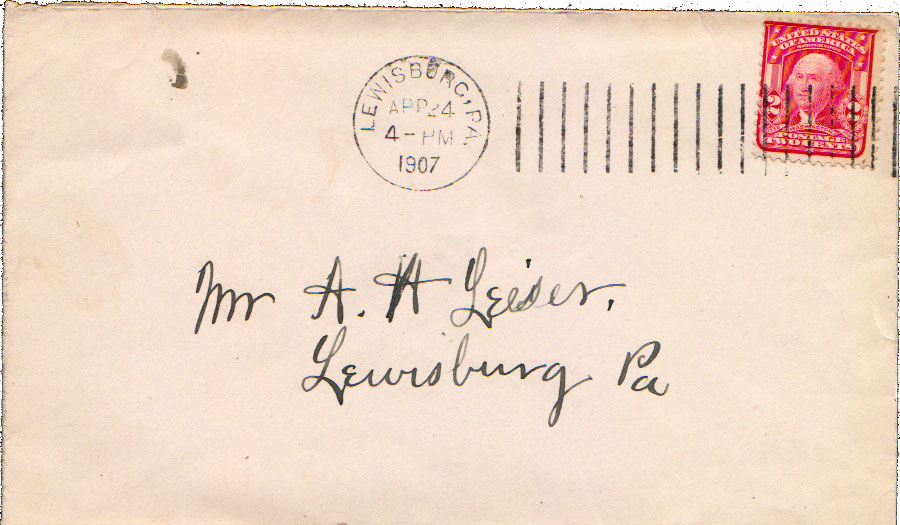 LEWISBURG, PA.
APR 24
4-PM
1907
UNITED STATES
OF AMERICA
2 2
WASHINGTON
TWO CENTS
Mr A. H Leiser,
Lewisburg Pa